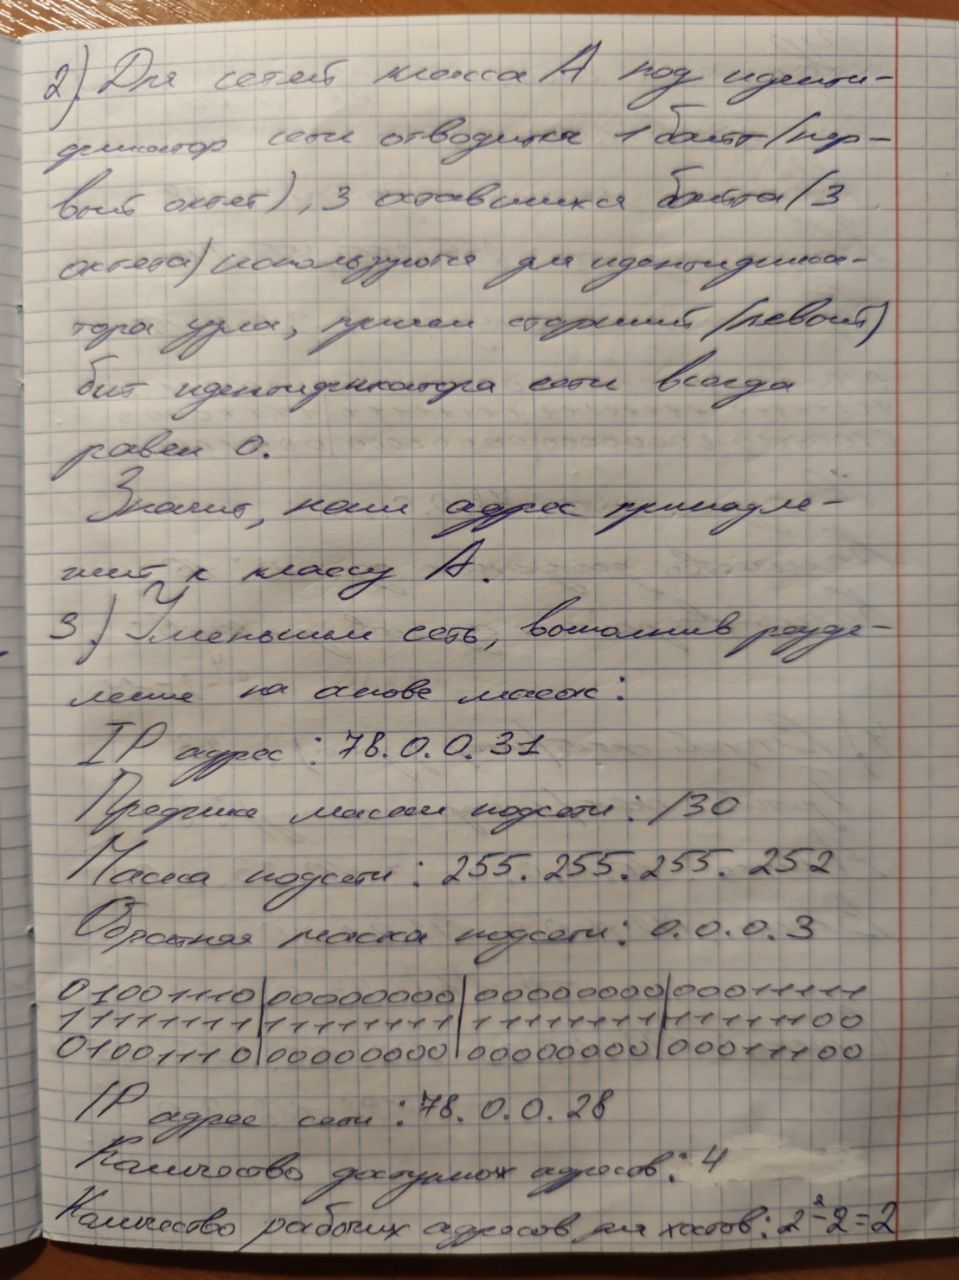 2) Для сетей класса А под иденти-
фикатор сети отводится 1 байт (пер-
вый октет), 3 оставшихся байта (3
октета) используются для идентифика-
тора узла, причем старший (левый)
бит идентификатора сети всегда
равен 0.
Значит, наш адрес принадле-
жит к классу А.
3) Уменьшим сеть, выполнив разде-
ление на основе масок:
IP адрес: 78.0.0.31
Префикс маски подсети: /30
Маска подсети: 255.255.255.252
Обратная маска подсети: 0.0.0.3
01001110|00000000|00000000|00011111
11111111|11111111|11111111|11111100
01001110|00000000|00000000|00011100
IP адрес сети: 78.0.0.28
Количество доступных адресов: 4
Количество рабочих адресов для хостов: 2²-2=2